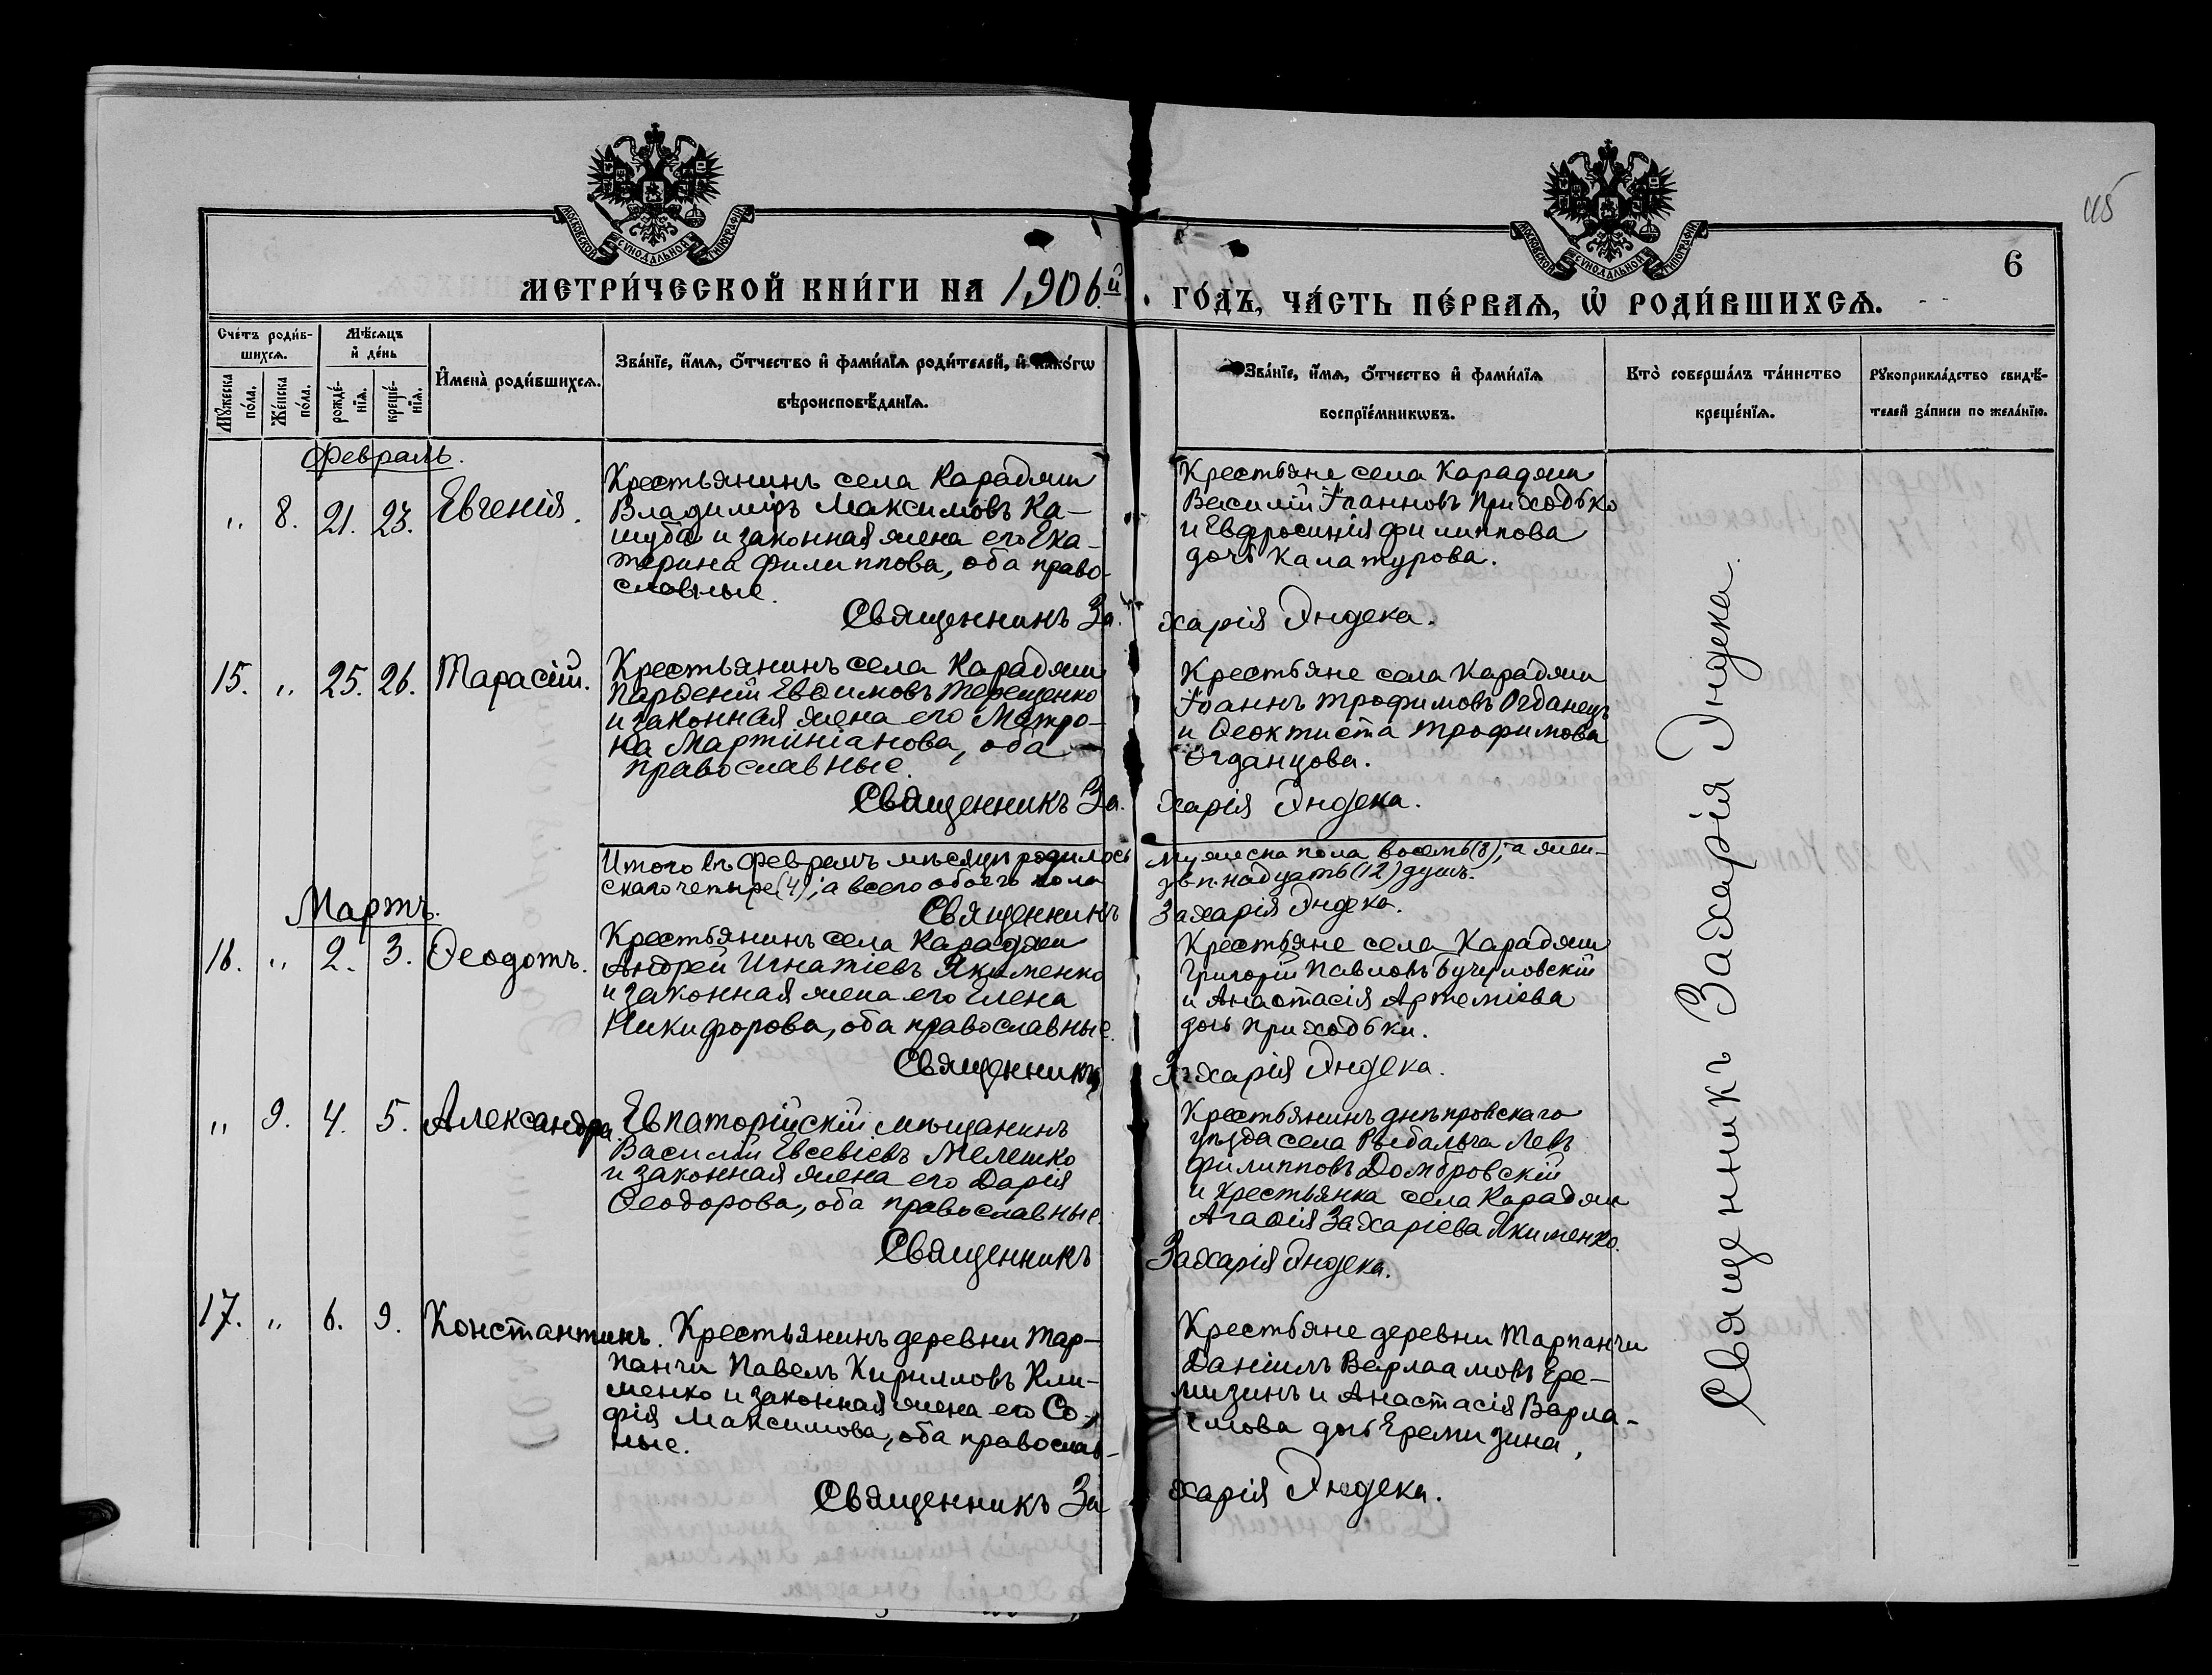 115
6
МОСКОВСКОЙ СУНОДАЛЬНОЙ ТИПОГРАФІИ
МОСКОВСКОЙ СУНОДАЛЬНОЙ ТИПОГРАФІИ
МЕТРИ́ЧЕСКОЙ КНИ́ГИ НА 1906.й
ГО́ДЪ, ЧА́СТЬ ПЕ́РВАѦ, Ѡ҆ РОДИ́ВШИХСѦ.
Сче́тъ роди́в-
шихсѧ.
Мꙋ́жеска по́ла.
Же́нска по́ла.
Мѣ́сѧцъ
и҆ де́нь
рожде́-
нїѧ.
креще́-
нїѧ.
И҆мена̀ роди́вшихсѧ.
Зва́нїе, и҆́мѧ, ѻ҆́тчество и҆ фами́лїѧ роди́телей, и҆ како́гѡ
вѣроисповѣ́данїѧ.
Зва́нїе, и҆́мѧ, ѻ҆́тчество и҆ фами́лїѧ
воспрїе́мникѡвъ.
Кто̀ соверша́лъ та́инство
креще́нїѧ.
Рꙋкоприкла́дство свидѣ́-
телей за́писи по жела́нїю.
Февраль.
„ 8. 21. 23. Евгенія.
Крестьянинъ села Караджи
Владиміръ Максимовъ Ка-
шуба и законная жена его Ека-
терина Филиппова, оба право-
славные.
Крестьяне села Караджи
Василій Іоанновъ Приходько
и Евфросинія Филиппова
дочь Калатурова.
Священникъ За-
харія Яндека.
15. „ 25. 26. Тарасій.
Крестьянинъ села Караджи
Парѳеній Евѳимовъ Терещенко
и законная жена его Матро-
на Мартиніанова, оба
православные.
Крестьяне села Караджи
Іоаннъ Трофимовъ Огданецъ
и Ѳеоктиста Трофимова
Огданцова.
Священникъ За-
харія Яндека.
Итого въ Февралѣ мѣсяцѣ родилось
мужеска пола восемь (8), а жен-
скаго четыре (4), а всего обоего пола
двѣнадцать (12) душъ.
Священникъ
Захарія Яндека.
Мартъ.
16. „ 2. 3. Ѳеодотъ.
Крестьянинъ села Караджи
Андрей Игнатіевъ Якименко
и законная жена его Елена
Никифорова, оба православные.
Крестьяне села Караджи
Григорій Павловъ Бучумовскій
и Анастасія Артеміева
дочь Приходьки.
Священникъ
Захарія Яндека.
„ 9. 4. 5. Александра.
Евпаторійскій мѣщанинъ
Василій Евсевіевъ Мелешко
и законная жена его Дарія
Ѳеодорова, оба православные
Крестьянинъ днѣпровскаго
уѣзда села Рыбальча Левъ
Филипповъ Домбровскій
и крестьянка села Караджи
Агаѳія Захаріева Якименко.
Священникъ
Захарія Яндека.
17. „ 6. 9. Константинъ.
Крестьянинъ деревни Тар-
панчи Павелъ Кирилловъ Кли-
менко и законная жена его Со-
фія Максимова, оба православ-
ные.
Крестьяне деревни Тарпанчи
Даніилъ Варлаамовъ Ере-
мизинъ и Анастасія Варла-
амова дочь Еремизина,
Священникъ За
харія Яндека.
Священникъ Захарія Яндека.